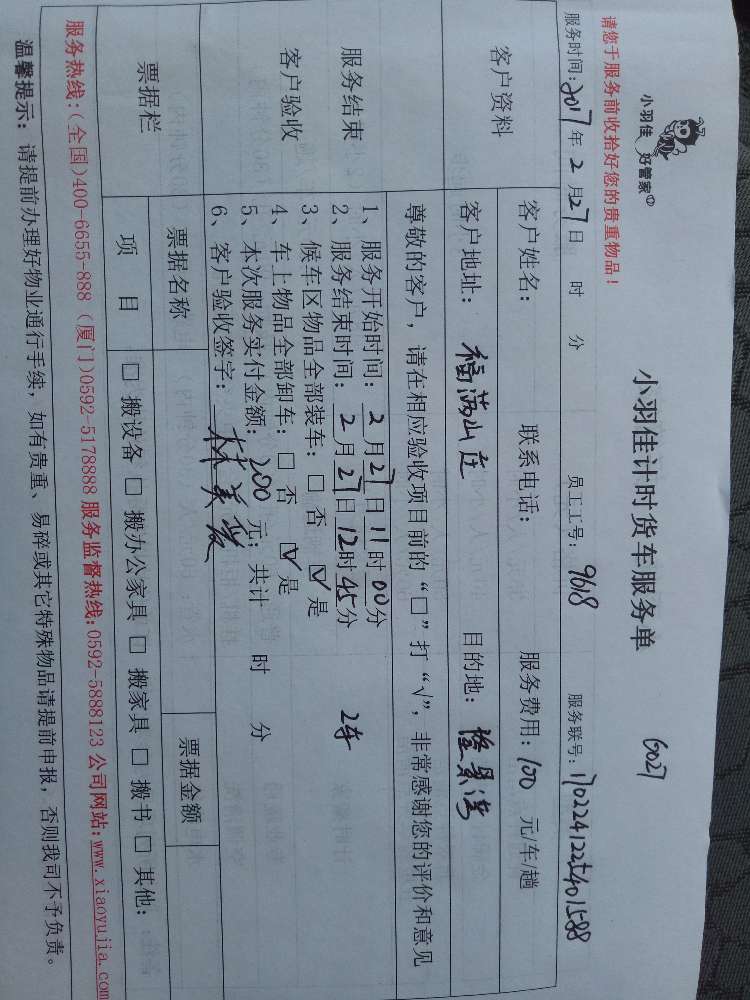 小羽佳 好管家
小羽佳计时货车服务单
6027
请您于服务前收拾好您的贵重物品！
服务时间：2017年2月27日 时 分 员工工号：9618 服务联号：1702241225401588
客户资料
客户姓名： 联系电话： 服务费用：100 元/车/趟
客户地址：福满山庄 目的地：
尊敬的客户，请在相应验收项目前的“□”打“√”，非常感谢您的评价和意见
服务结束
客户验收
1、服务开始时间：2月27日11时00分
2、服务结束时间：2月27日12时45分 2车
3、候车区物品全部装车：□ 否 ☑ 是
4、车上物品全部卸车：□ 否 ☑ 是
5、本次服务实付金额：200 元；共计 时 分
6、客户验收签字：
票据栏
票据名称 票据金额
项 目 □ 搬设备 □ 搬办公家具 □ 搬家具 □ 搬书 □ 其他：
服务热线：（全国）400-6655-888（厦门）0592-5178888 服务监督热线：0592-5888123 公司网站：www.xiaoyujia.com
温馨提示：请提前办理好物业通行手续，如有贵重、易碎或其它特殊物品请提前申报，否则我司不予负责。